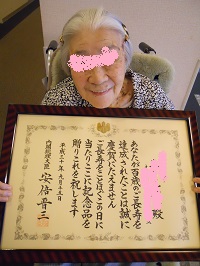 殿
あなたが百歳のご長寿を
達成されたことは誠に
慶賀にたえません
ご長寿をことほぐこの日に
当たりここに記念品を
贈りこれを祝します
平成三十年九月十五日
内閣総理大臣 安倍晋三